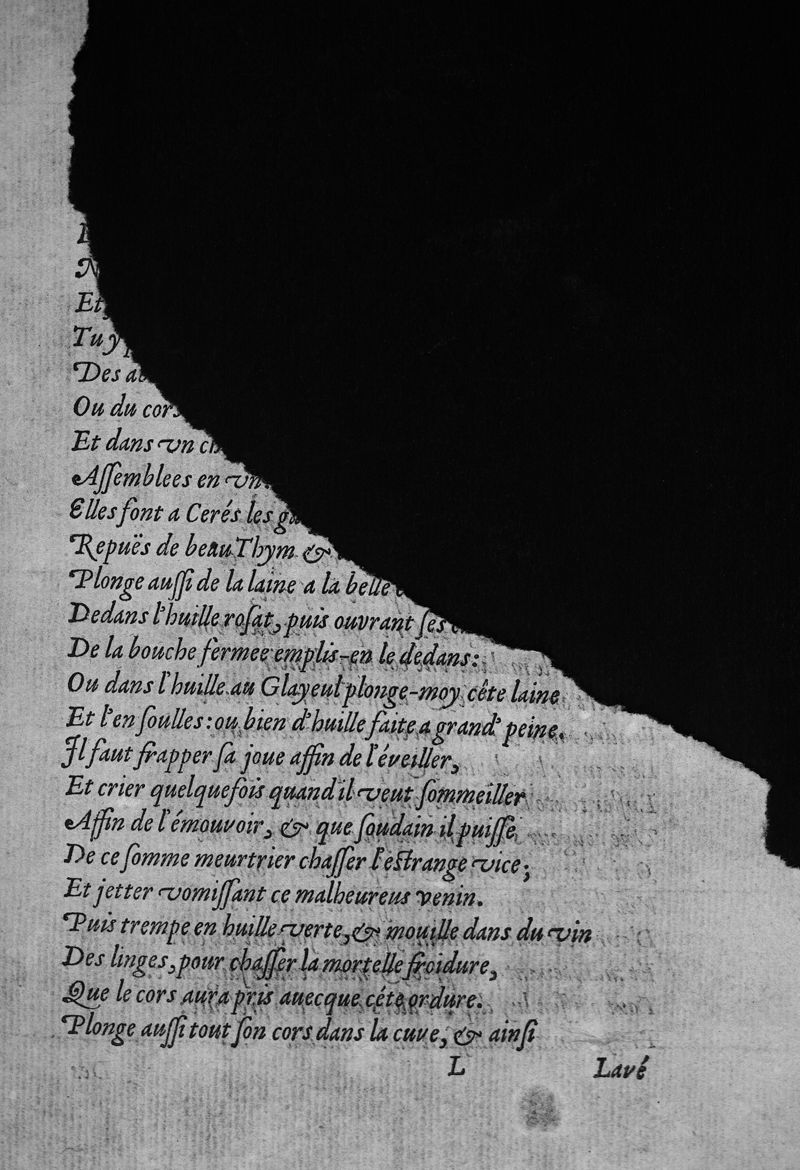 Et
Tu y
Des
Ou du cors
Et dans vn
Aſſemblees en vn
Elles font a Cerés les
Repuës de beau Thym &
Plonge auſſi de la laine a la belle
Dedans l'huille roſat, puis ouvrant ſes
De la bouche fermee emplis-en le dedans:
Ou dans l'huille au Glayeul plonge-moy céte laine
Et l'en ſoulles: ou bien d'huille faite a grand' peine.
Il faut frapper ſa joue affin de l'éveiller,
Et crier quelquefois quand il veut ſommeiller
Affin de l'émouvoir, & que ſoudain il puiſſe,
De ce ſomme meurtrier chaſſer l'eſtrange vice;
Et jetter vomiſſant ce malheureus venin.
Puis trempe en huille verte, & mouille dans du vin
Des linges, pour chaſſer la mortelle froidure,
Que le cors aura pris auecque céte ordure.
Plonge auſſi tout ſon cors dans la cuve, & ainſi
L Lavé